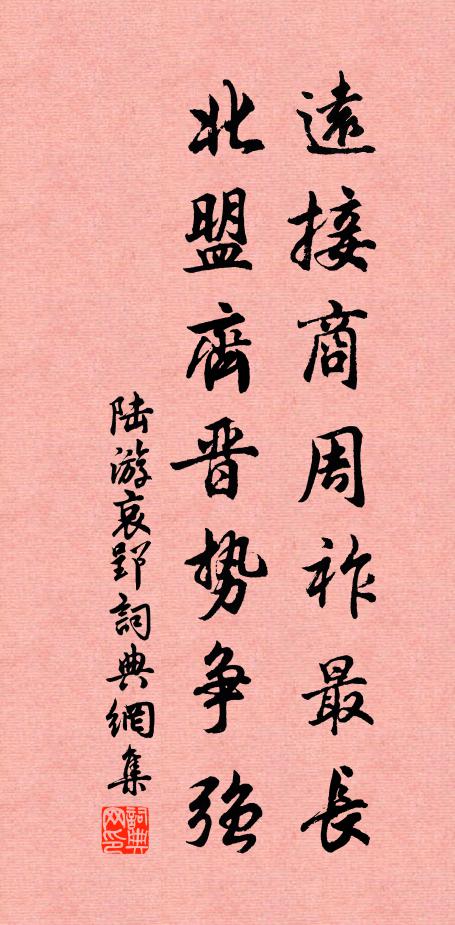 遠接商周祚最長
北盟齊晋勢争强
陆游哀郢詞典網集
詞典网印